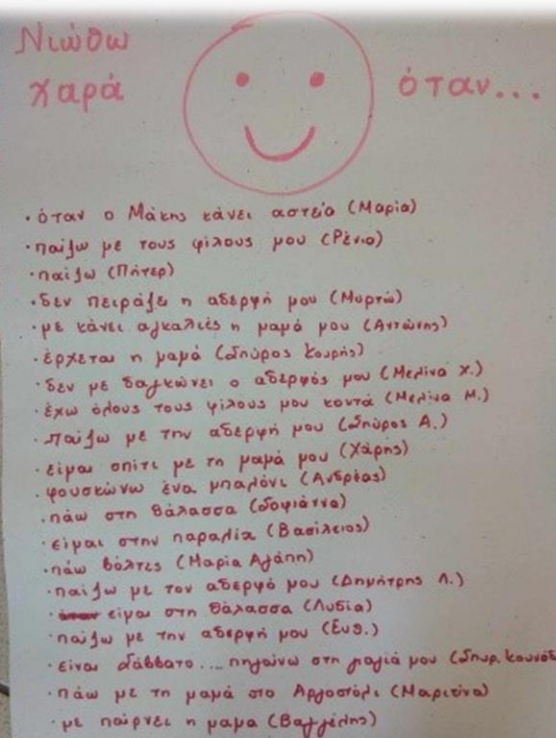 Νιώθω
χαρά όταν...
· όταν ο Μάκης κάνει αστεία (Μαρία)
· παίζω με τους φίλους μου (Ρένια)
· παίζω (Πήτερ)
· δεν πειράζει η αδερφή μου (Μυρτώ)
· με κάνει αγκαλιές η μαμά μου (Αντώνης)
· έρχεται η μαμά (Σπύρος Κουρής)
· δεν με δαγκώνει ο αδερφός μου (Μελίνα Χ.)
· έχω όλους τους φίλους μου κοντά (Μελίνα Μ.)
· παίζω με την αδερφή μου (Σπύρος Α.)
· είμαι σπίτι με τη μαμά μου (Χάρης)
· φουσκώνω ένα μπαλόνι (Ανδρέας)
· πάω στη θάλασσα (Σοφιάννα)
· είμαι στην παραλία (Βασίλειος)
· πάω βόλτες (Μαρία Αγάπη)
· παίζω με τον αδερφό μου (Δημήτρης Λ.)
· είμαι στη θάλασσα (Λυδία)
· παίζω με την αδερφή μου (Ευθ.)
· είναι Σάββατο... πηγαίνω στη γιαγιά μου (Σπυρ.
· πάω με τη μαμά στο Αργοστόλι (Μαριτίνα)
· με παίρνει η μαμα (Βαγγέλης)